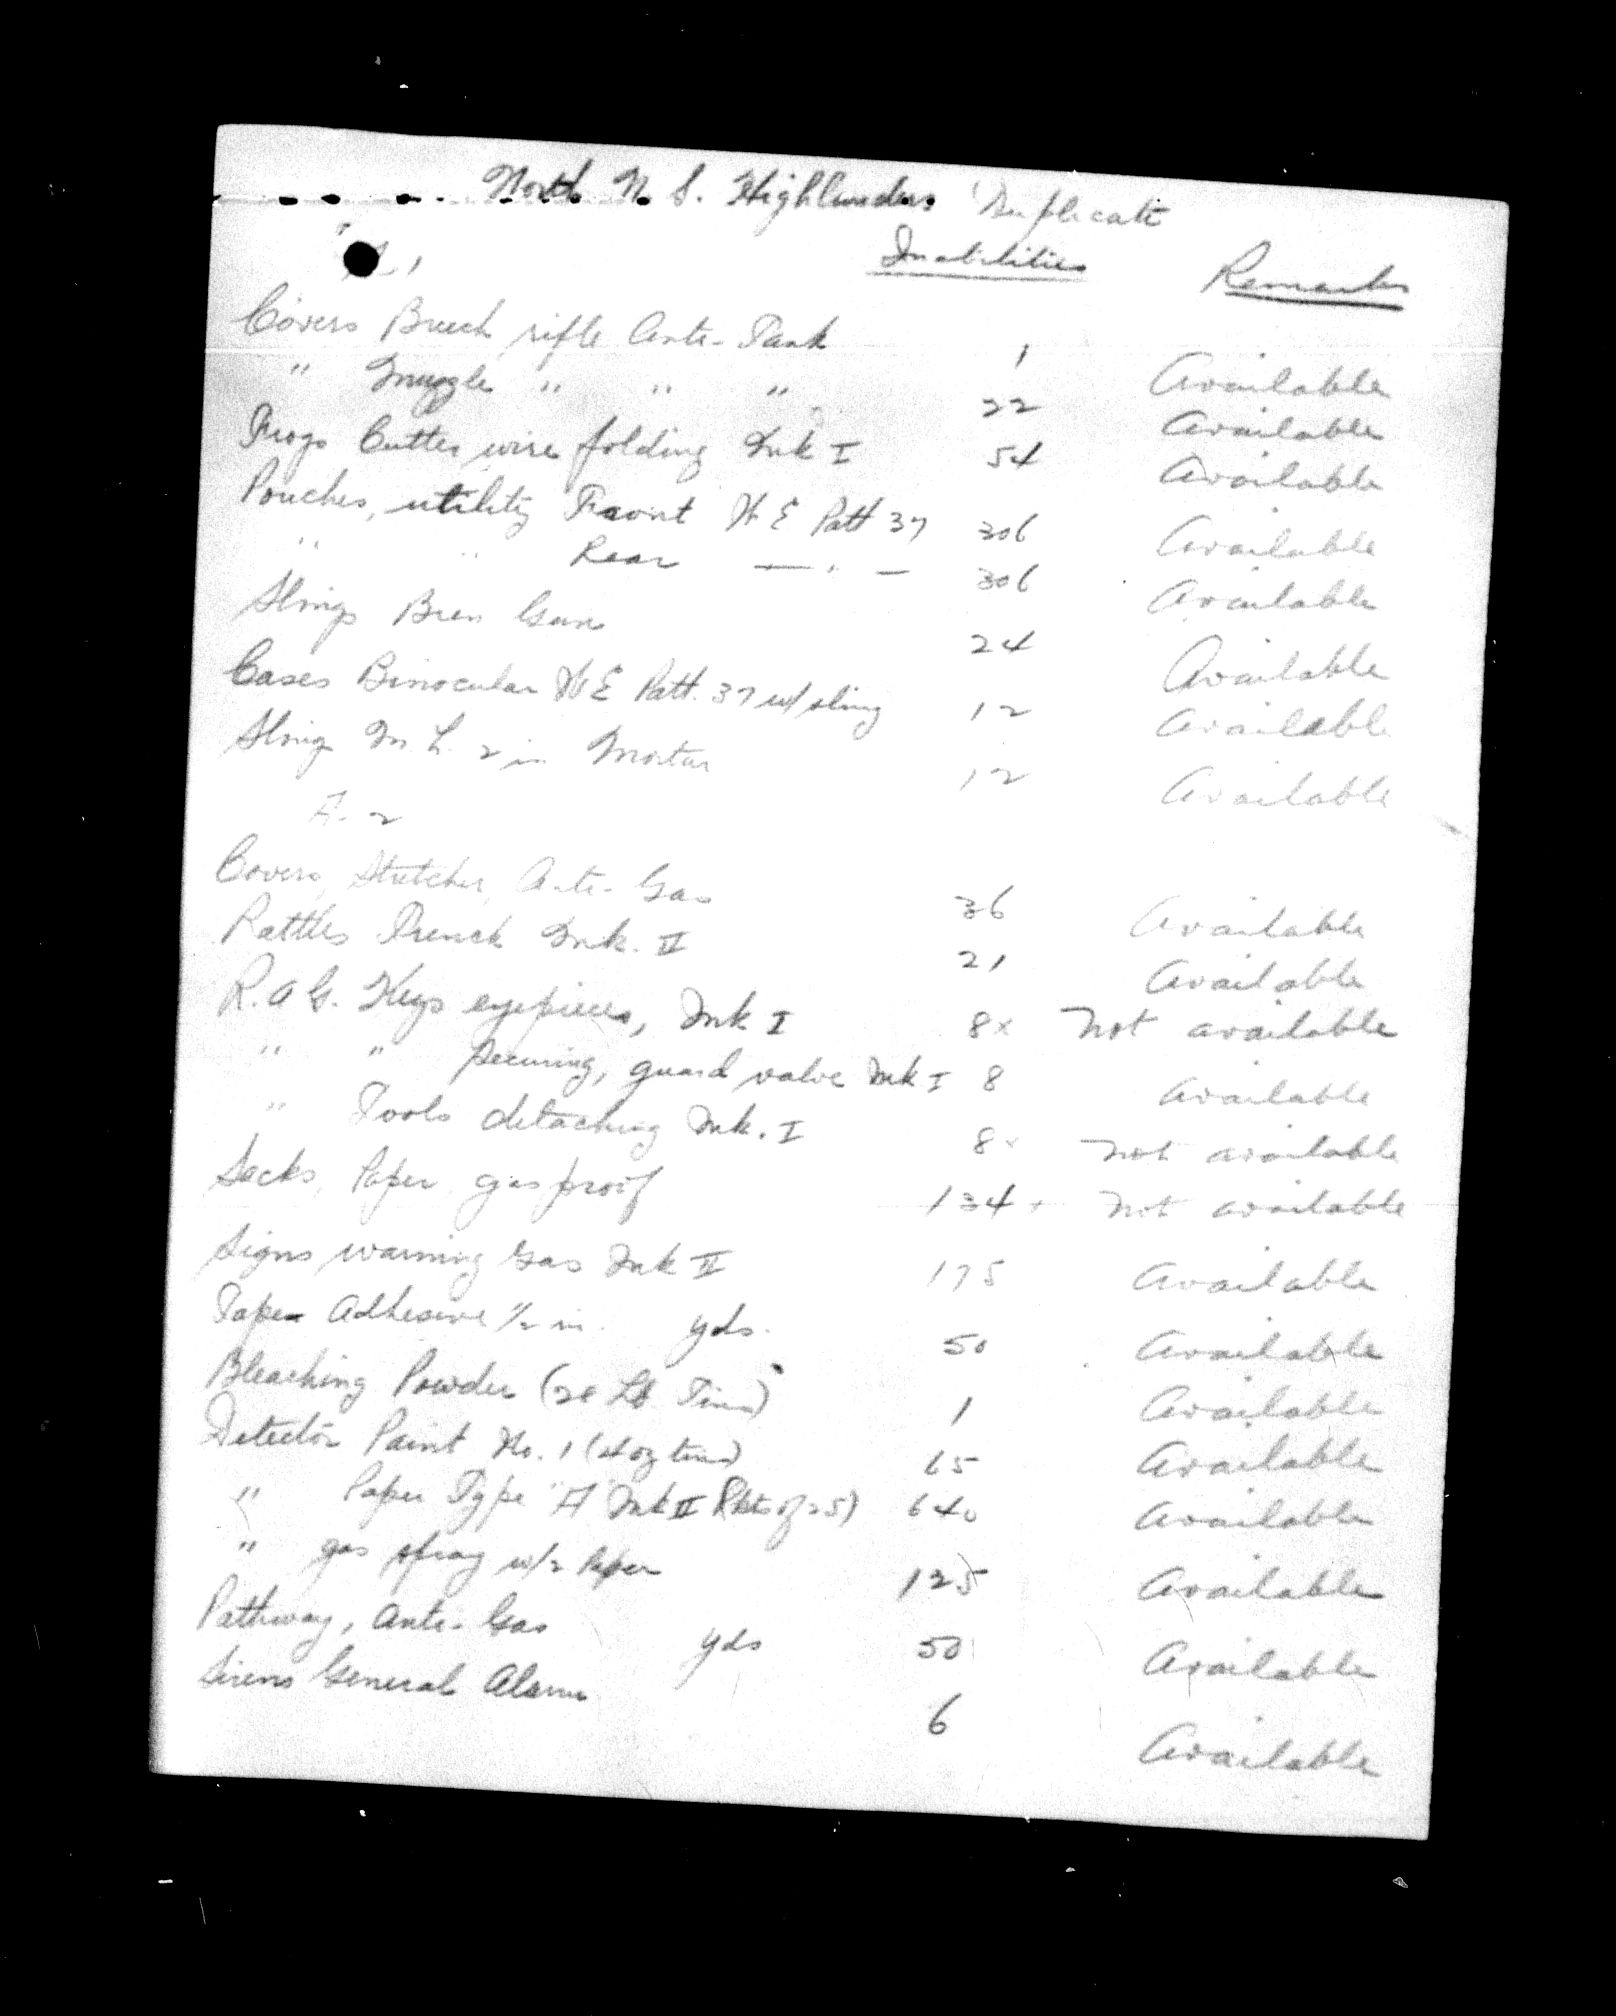 North N. S. Highlanders Duplicate
Inabilities Remarks
Covers Breech rifle Anti-Tank 1 Available
" Muzzle " " " 22 Available
Frogs Cutter wire folding Mk I 54 Available
Pouches, utility Front W E Patt 37 306 Available
" " Rear — " — 306 Available
Slings Bren Gun 24 Available
Cases Binocular W E Patt. 37 w/ sling 12 Available
Sling M. L. 2 in Mortar 12 Available
A. 2
Covers, Stretcher, Anti-Gas 36 Available
Rattles Trench Mk. II 21 Available
R. A G. Keys eyepieces, Mk I 8 x Not available
" " securing, guard valve Mk I 8 Available
" Tools detaching Mk. I 8 x Not available
Sacks, Paper, gas proof 134 + Not available
Signs warning Gas Mk II 175 Available
Tape Adhesive 1/2 in. yds. 50 Available
Bleaching Powder (28 Lb Tins) 1 Available
Detector Paint No. 1 (4 oz tins) 65 Available
" Paper Type A Mk II (Pkts of 25) 640 Available
" gas spray w/2 Paper 125 Available
Pathway, Anti-Gas yds 50 Available
Sirens General Alarm 6 Available